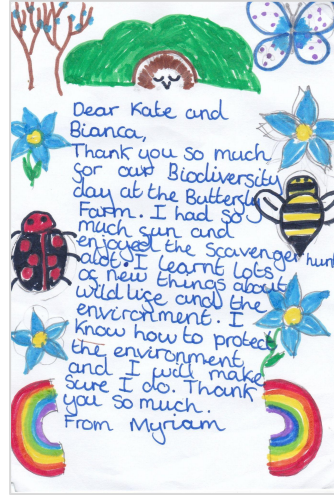 Dear Kate and
Bianca,
Thank you so much
for our Biodiversity
day at the Butterfly
Farm. I had so
much fun and
enjoyed the scavenger hunt
alot. I learnt lots
of new things about
wildlife and the
environment. I
know how to protect
the environment
and I will make
sure I do. Thank
you so much.
From Myriam